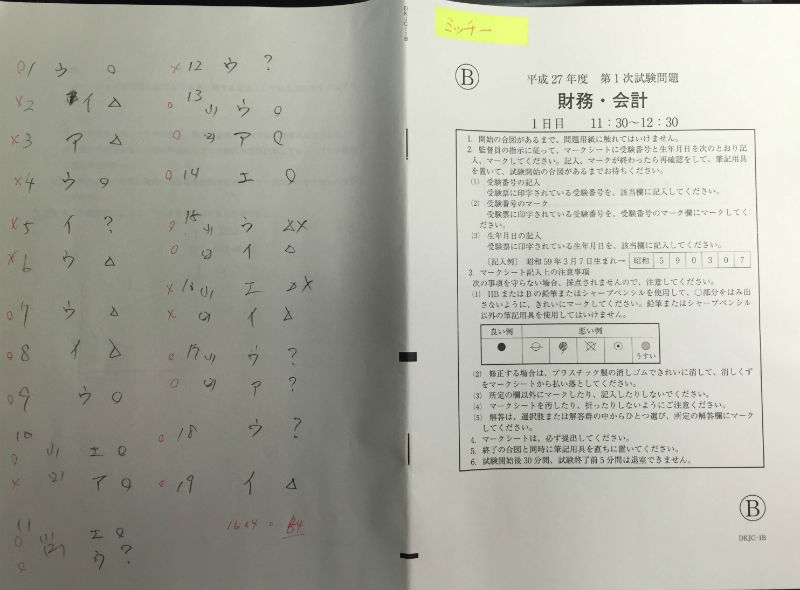 DKJC-1B
○1 ウ ○
×2 イ △
×3 ア △
×4 ウ ○
×5 イ ?
×6 ウ △
○7 ウ △
○8 イ △
○9 ウ ○
10
○ (1) エ ○
× (2) ア ○
11
○ (1) エ ○
○ (2) ウ ?
×12 ウ ?
13
○ (1) ウ ○
○ (2) ア ○
○14 エ ○
15
○ (1) ウ △×
○ (2) イ △
×16 (1) エ △×
× (2) イ △
○17 (1) ウ ?
○ (2) ア ?
○18 ウ ?
○19 イ △
16×4 = 64
ミッチー
B
平成27年度 第1次試験問題
財務・会計
1日目 11:30～12:30
1. 開始の合図があるまで、問題用紙に触れてはいけません。
2. 監督員の指示に従って、マークシートに受験番号と生年月日を次のとおり記
入、マークしてください。記入、マークが終わったら再確認をして、筆記用具
を置いて、試験開始の合図があるまでお待ちください。
(1) 受験番号の記入
受験票に印字されている受験番号を、該当欄に記入してください。
(2) 受験番号のマーク
受験票に印字されている受験番号を、受験番号のマーク欄にマークしてく
ださい。
(3) 生年月日の記入
受験票に印字されている生年月日を、該当欄に記入してください。
〔記入例〕 昭和59年3月7日生まれ→ 昭和 5 9 0 3 0 7
3. マークシート記入上の注意事項
次の事項を守らない場合、採点されませんので、注意してください。
(1) HBまたはBの鉛筆またはシャープペンシルを使用して、○部分をはみ出
さないように、きれいにマークしてください。鉛筆またはシャープペンシル
以外の筆記用具を使用してはいけません。
良い例 悪い例
うすい
(2) 修正する場合は、プラスチック製の消しゴムできれいに消して、消しくず
をマークシートから払い落としてください。
(3) 所定の欄以外にマークしたり、記入したりしないでください。
(4) マークシートを汚したり、折ったりしないようにご注意ください。
(5) 解答は、選択肢または解答群の中からひとつ選び、所定の解答欄にマーク
してください。
4. マークシートは、必ず提出してください。
5. 終了の合図と同時に筆記用具を直ちに置いてください。
6. 試験開始後30分間、試験終了前5分間は退室できません。
B
DKJC-1B